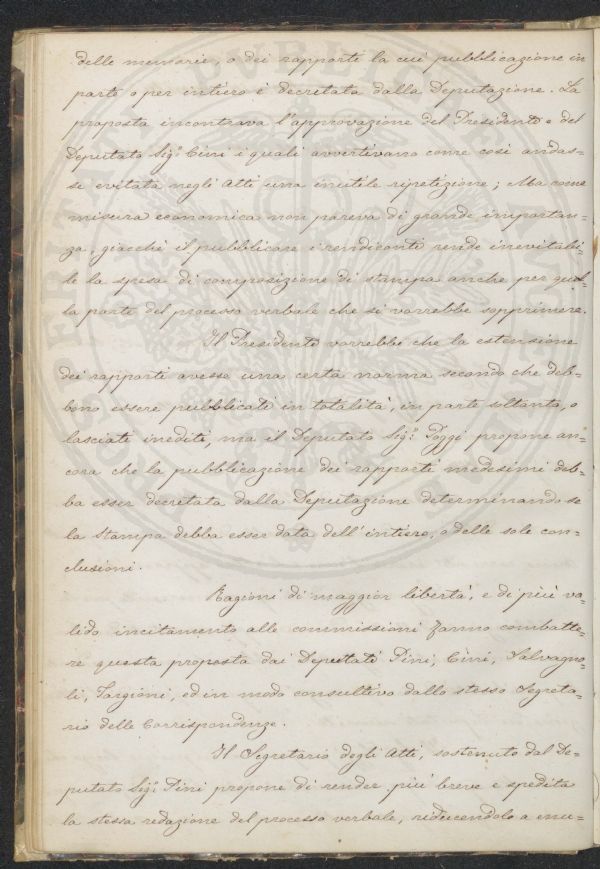 delle memorie, o dei rapporti la cui pubblicazione in
parte o per intiero è decretata dalla Deputazione. La
proposta incontrava l'approvazione del Presidente e del
Deputato Sig.r Cini i quali avvertivano come così andas=
se evitata negli Atti una inutile ripetizione; Ma come
misura economica non pareva di grande importan=
za, giacchè il pubblicare i rendiconti rende inevitabi=
le la spesa di composizione di stampa anche per quel=
la parte del processo verbale che si vorrebbe sopprimere.
Il Presidente vorrebbe che la estensione
dei rapporti avesse una certa norma secondo che deb=
bono essere pubblicati in totalità, in parte soltanto, o
lasciati inediti, ma il Deputato Sig.r Poggi propone an=
cora che la pubblicazione dei rapporti medesimi deb=
ba esser decretata dalla Deputazione determinando se
la stampa debba esser data dell'intiero, o delle sole con=
clusioni.
Ragioni di maggior libertà, e di più va=
lido incitamento alle commissioni fanno combatte=
re questa proposta dai Deputati Pini, Cini, Salvagno=
li, Targioni, ed in modo consultivo dallo stesso Segreta=
rio delle Corrispondenze.
Il Segretario degli Atti, sostenuto dal De=
putato Sig.r Pini propone di render più breve e spedita
la stessa redazione del processo verbale, riducendolo a enu=
HOSPERITAS PUBLICA AUGENDA